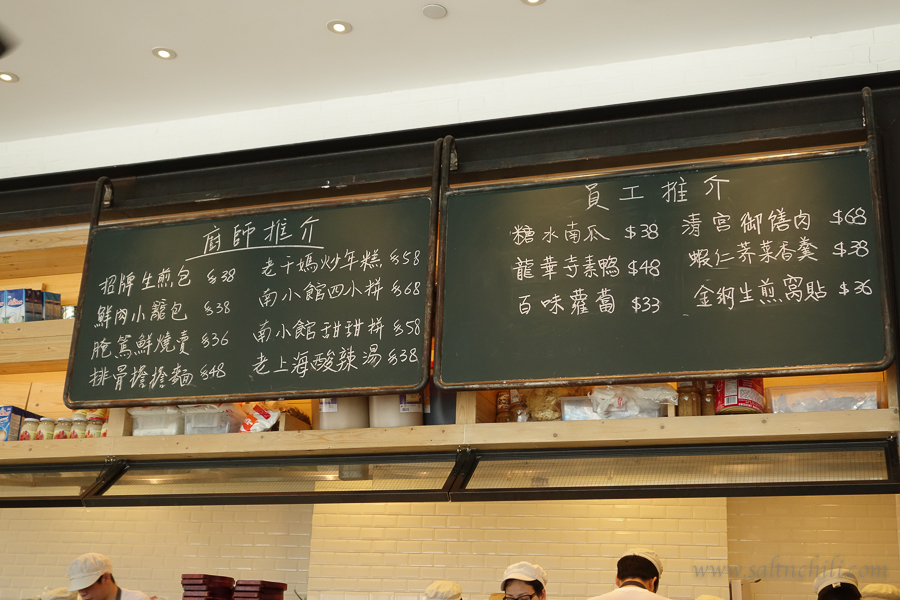 廚師推介
招牌生煎包 $38
鮮肉小籠包 $38
腌篤鮮燒賣 $36
排骨擔擔麵 $48
老干媽炒年糕 $58
南小館四小拼 $68
南小館甜甜拼 $58
老上海酸辣湯 $38
員工推介
糖水南瓜 $38
龍華寺素鴨 $48
百味蘿蔔 $33
清宮御膳肉 $68
蝦仁荠菜香羹 $38
金網生煎窩貼 $36
www.saltnchili.com